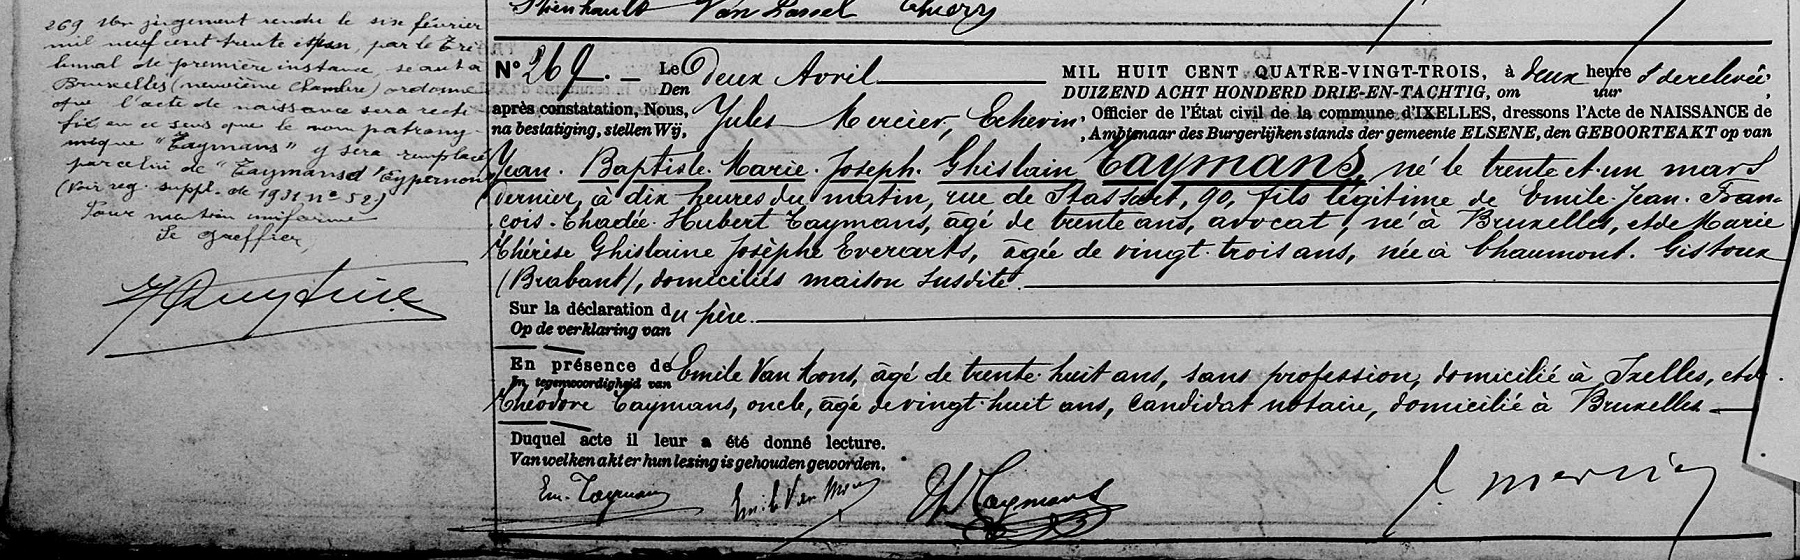 Van Lassel Thiery
269 Un jugement rendu le six février
mil neuf cent trente et un, par le Tri-
bunal de première instance, séant à
Bruxelles (neuvième Chambre) ordonne
que l'acte de naissance sera recti-
fié en ce sens que le nom patrony-
mique "Taymans" y sera remplacé
par celui de "Taymans d'Eypernon"
(voir reg. suppl. de 1931 n° 52)
Pour mention uniforme
Le greffier,
N° 269. Le Deux Avril MIL HUIT CENT QUATRE-VINGT-TROIS, à deux heures de relevée,
Den DUIZEND ACHT HONDERD DRIE-EN-TACHTIG, om uur ,
après constatation, Nous, Jules Mercier, Echevin, Officier de l'État civil de la commune d'IXELLES, dressons l'Acte de NAISSANCE de
na bestatiging, stellen Wij, , Ambtenaar des Burgerlijken stands der gemeente ELSENE, den GEBOORTEAKT op van
Jean Baptiste Marie Joseph Ghislain Taymans, né le trente et un mars
dernier, à dix heures du matin, rue de Stassart, 90, fils légitime de Emile Jean Fran-
çois Thadée Hubert Taymans, âgé de trente ans, avocat, né à Bruxelles, et de Marie
Thérèse Ghislaine Josèphe Everarts, âgée de vingt trois ans, née à Chaumont Gistoux
(Brabant), domiciliés maison susdite.
Sur la déclaration du père.
Op de verklaring van
En présence de Emile Van Mons, âgé de trente huit ans, sans profession, domicilié à Ixelles, et de
In tegenwoordigheid van
Théodore Taymans, oncle, âgé de vingt huit ans, candidat notaire, domicilié à Bruxelles
Duquel acte il leur a été donné lecture.
Van welken akt er hun lezing is gehouden geworden.
Em. Taymans Emile Van Mons Th Taymans J. Mercier